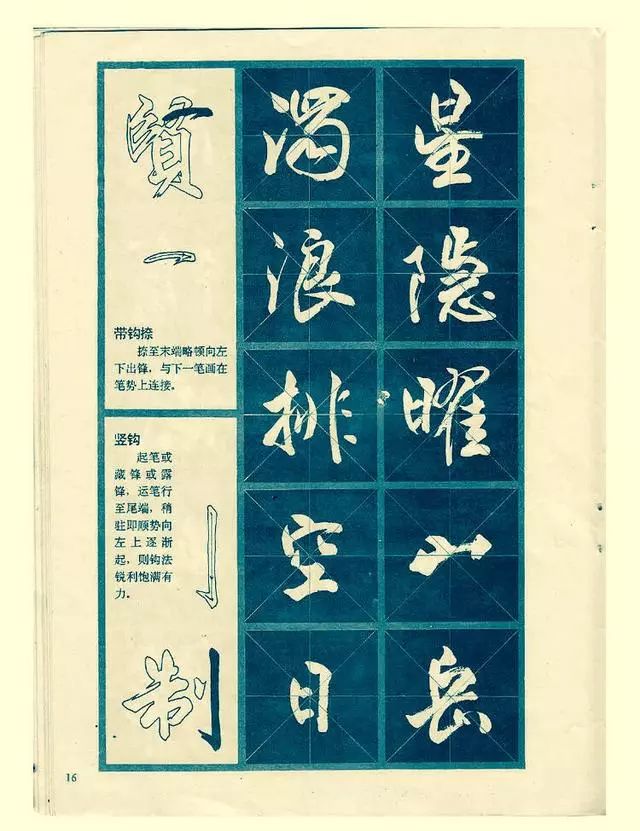 質
带钩捺
捺至末端略顿向左
下出锋，与下一笔画在
笔势上连接。
竖钩
起笔或
藏锋或露
锋，运笔行
至尾端，稍
驻即顺势向
左上逐渐
起，则钩法
锐利饱满有
力。
制
濁浪排空日
星隐曜山岳
16